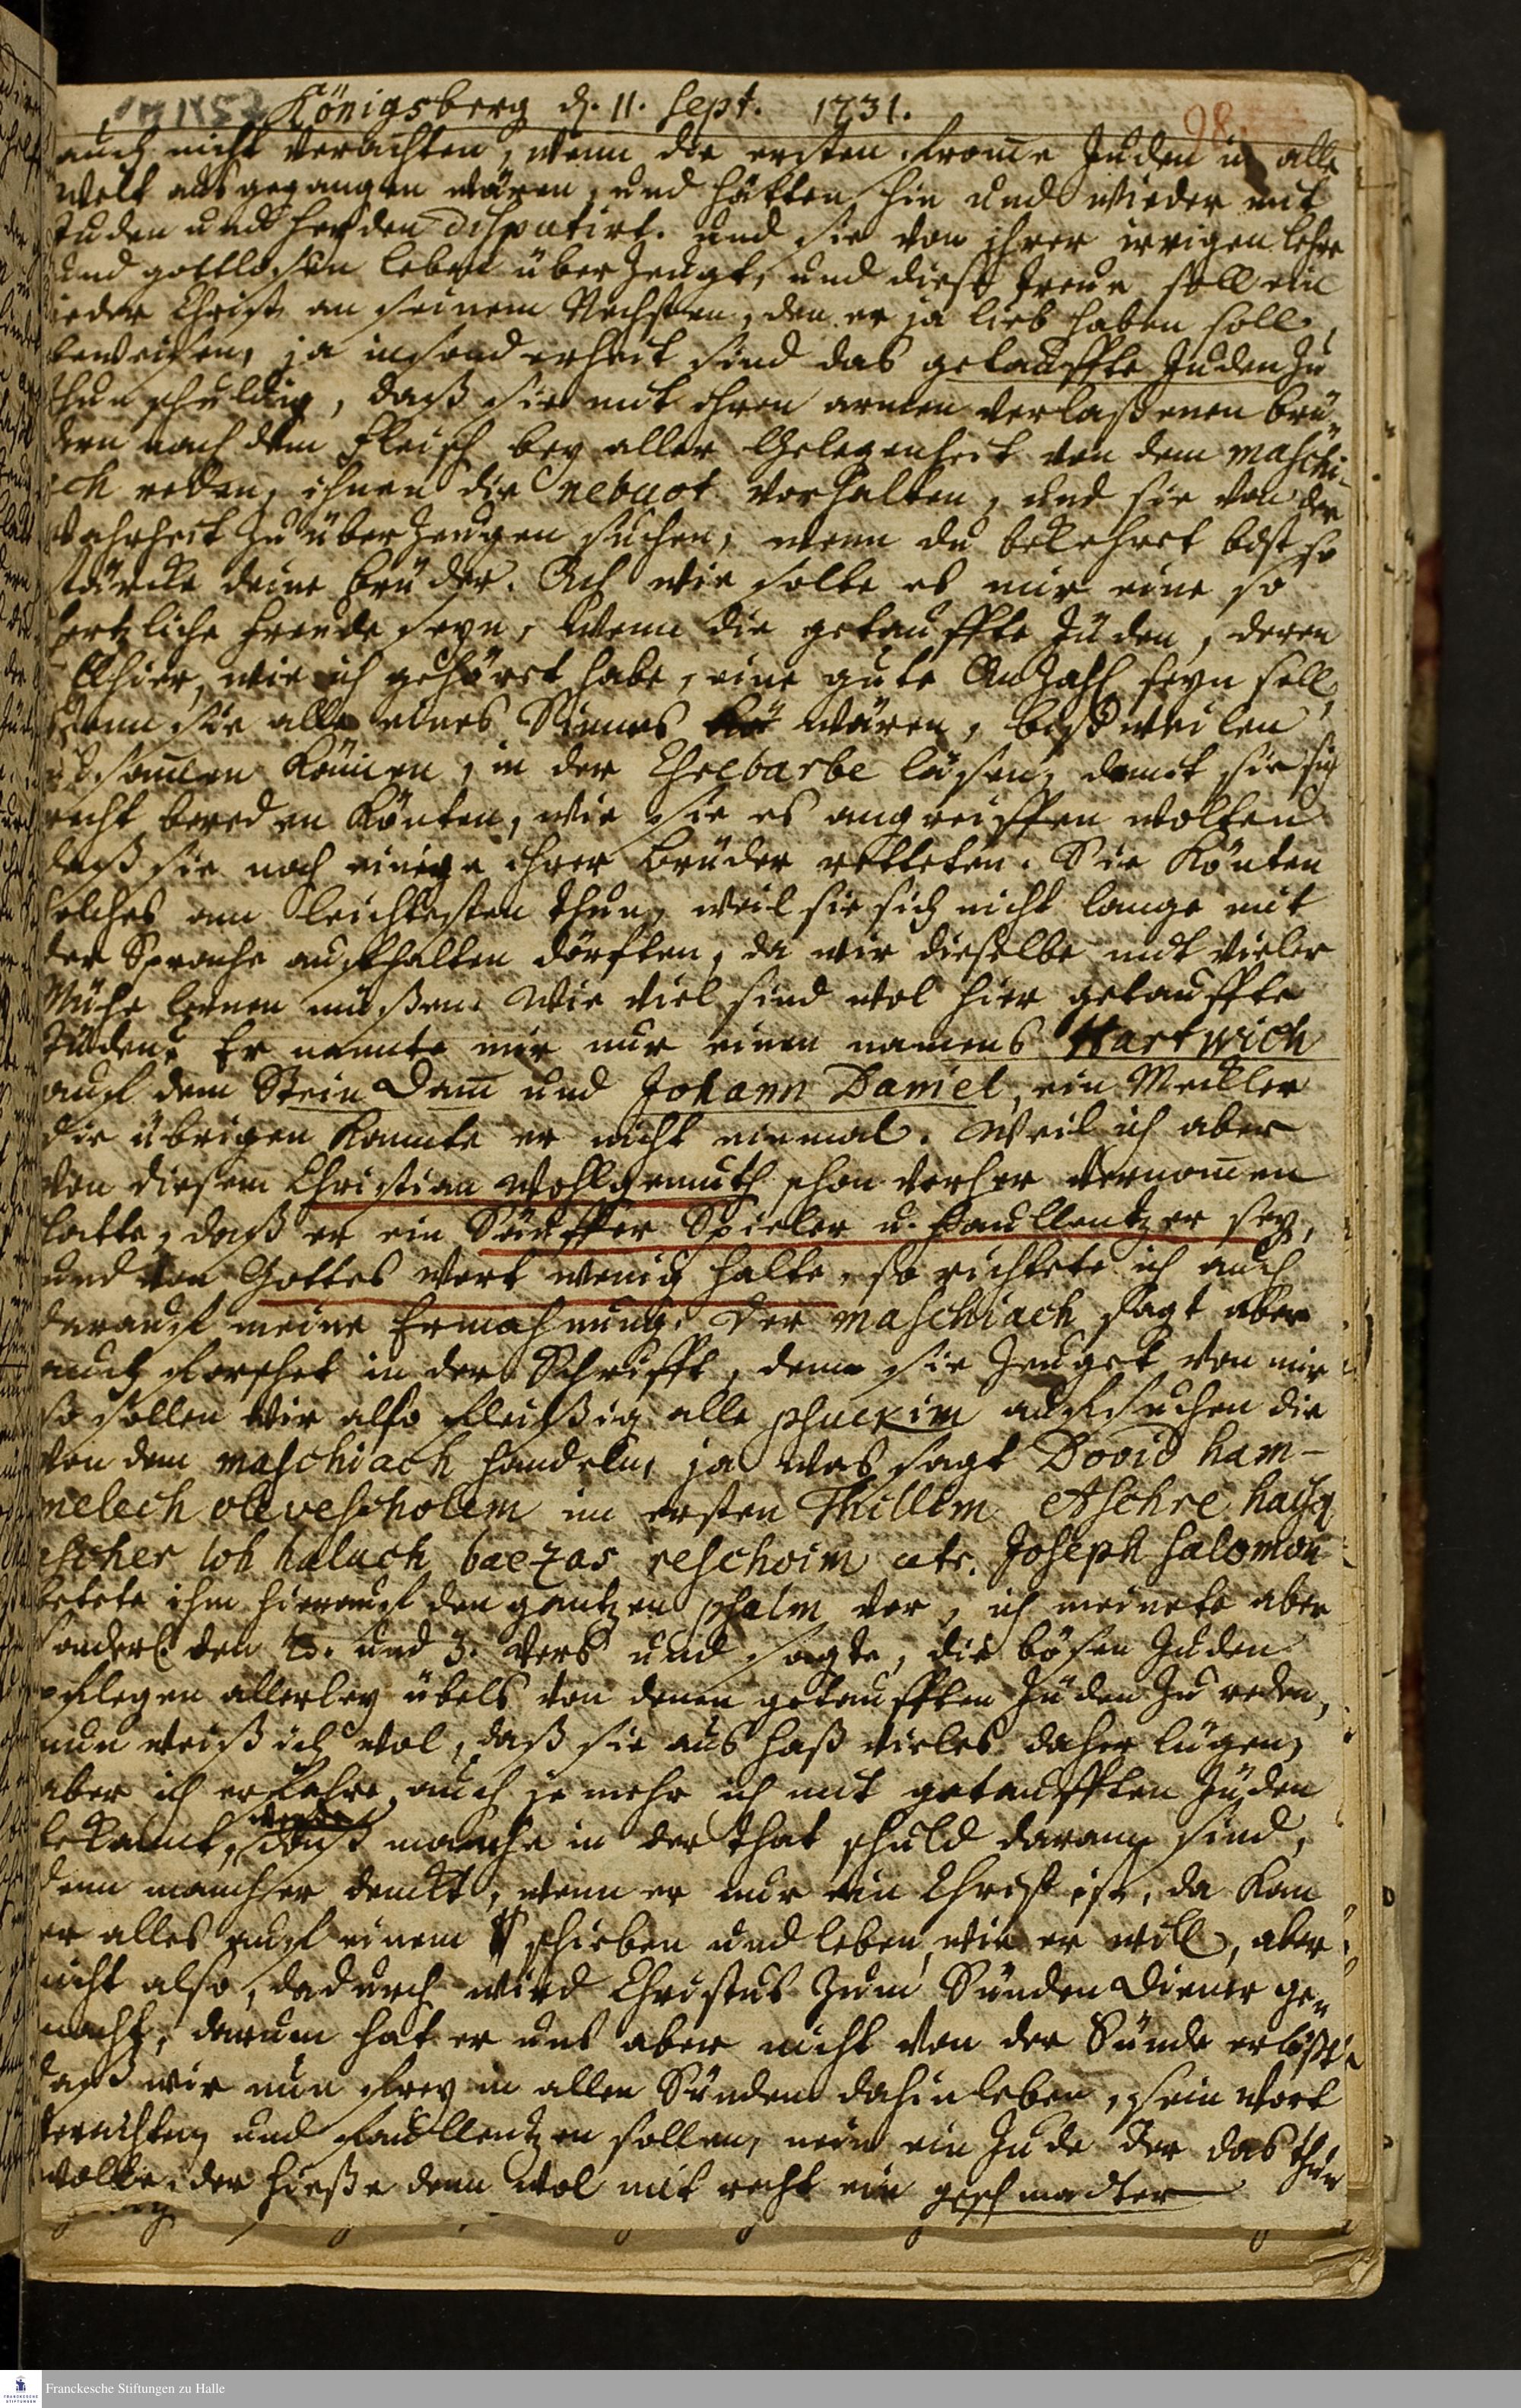 Königsberg d. 11. Sept. 1731.
98.
auch nicht verachten, wenn die ersten fromme Juden in alle
Welt ausgegangen wären, und hätten hin und wieder mit
Juden und Heyden disputirt. und sie von ihrer irrigen lehre
und gottlosen leben überzeugt, und diese treue soll ein
ieder Christ an seinem Nechsten, den er ja lieb haben soll,
beweisen, ja insonderheit sind das getauffte Juden zu
thun schuldig, daß sie mit ihren armen verlaßenen brü-
dern nach dem Fleisch bey aller Gelegenheit von dem maschi-
ach reden, ihnen die nebuot vorhalten, und sie von der
Wahrheit zu überzeugen suchen, wenn du bekehret bist so
stärcke deine brüder. Ach wie solte es mir eine so
hertzliche freude seyn, wenn die getauffte Jüden, deren
allhier, wie ich gehöret habe, eine gute Anzahl seyn soll,
wenn sie alle eines Sinnes wären, bißweilen
zusammen kämen, in der Esrebarbe läsen, damit sie sich
recht bereden könten, wie sie es angreiffen wolten
daß sie noch einige ihrer brüder retteten. Sie könten
solches am leichtesten thun, weil sie sich nicht lange mit
der Sprache auffhalten dörfften, da wir dieselbe mit vieler
Mühe lernen müßen. Wie viel sind wol hier getauffte
Jüden? Er nennte mir nur einen namens Hartwich
auf dem Stein Dam̅ und Johann Daniel, ein Meckler
die übrigen kannte er nicht einmal. Weil ich aber
von diesem Christian Wohlgemuth schon vorher vernom̅en
hatte, daß er ein Säuffer Spieler u. faullentzer sey,
und von Gottes wort wenig halte, so richtete ich auch
darauf meine Ermahnung. Der maschiach sagt aber
auch forschet in der Schrifft, denn sie zeuget von mir
so sollen wir also fleißig alle phuckim auffsuchen die
von dem maschiach handeln, ja was sagt Dovid ham-
melech olevescholem im ersten Thillim Aschre haisch
ascher loh haluch baezas reschoim etc. Joseph Salomon
betete ihm hierauf den gantzen psalm vor, ich meinete aber
sonderl. den 2. und 3. Vers und sagte, die bösen Juden
pflegen allerley übels von denen getaufften Jüden zu reden,
nun weiß ich wol, daß sie aus haß vieles daher lügen,
aber ich erfahre, auch je mehr ich mit getaufften Jüden
bekannt werde, daß manche in der that schuld daran sind,
denn mancher denckt, wenn er nur ein Christ ist, da kan
er alles auf einem schieben und leben, wie er will, aber
nicht also, dadurch wird Christus zum Sünden Diener ge-
macht, darum hat er uns aber nicht von der Sünde erlößt,
daß wir nun frey in allen Sünden dahin leben, sein wort
verachten und faullentzen sollen, nein ein Jude der das thun
wolte, der hieße denn wol mit recht ein geschmadter
Franckesche Stiftungen zu Halle